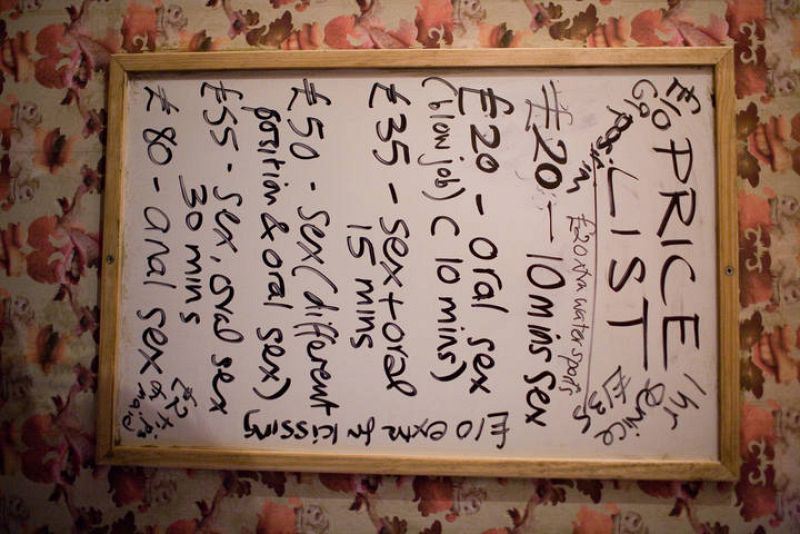 PRICE
LIST
£10
1hr
£135
£20 xtra watersports
£20 - 10 mins sex
£20 - oral sex
(blow job) (10 mins)
£35 - sex + oral
15 mins
£50 - sex (different
position & oral sex)
£55 - sex, oral sex
30 mins
£80 - anal sex
£10 extra 4 kissing